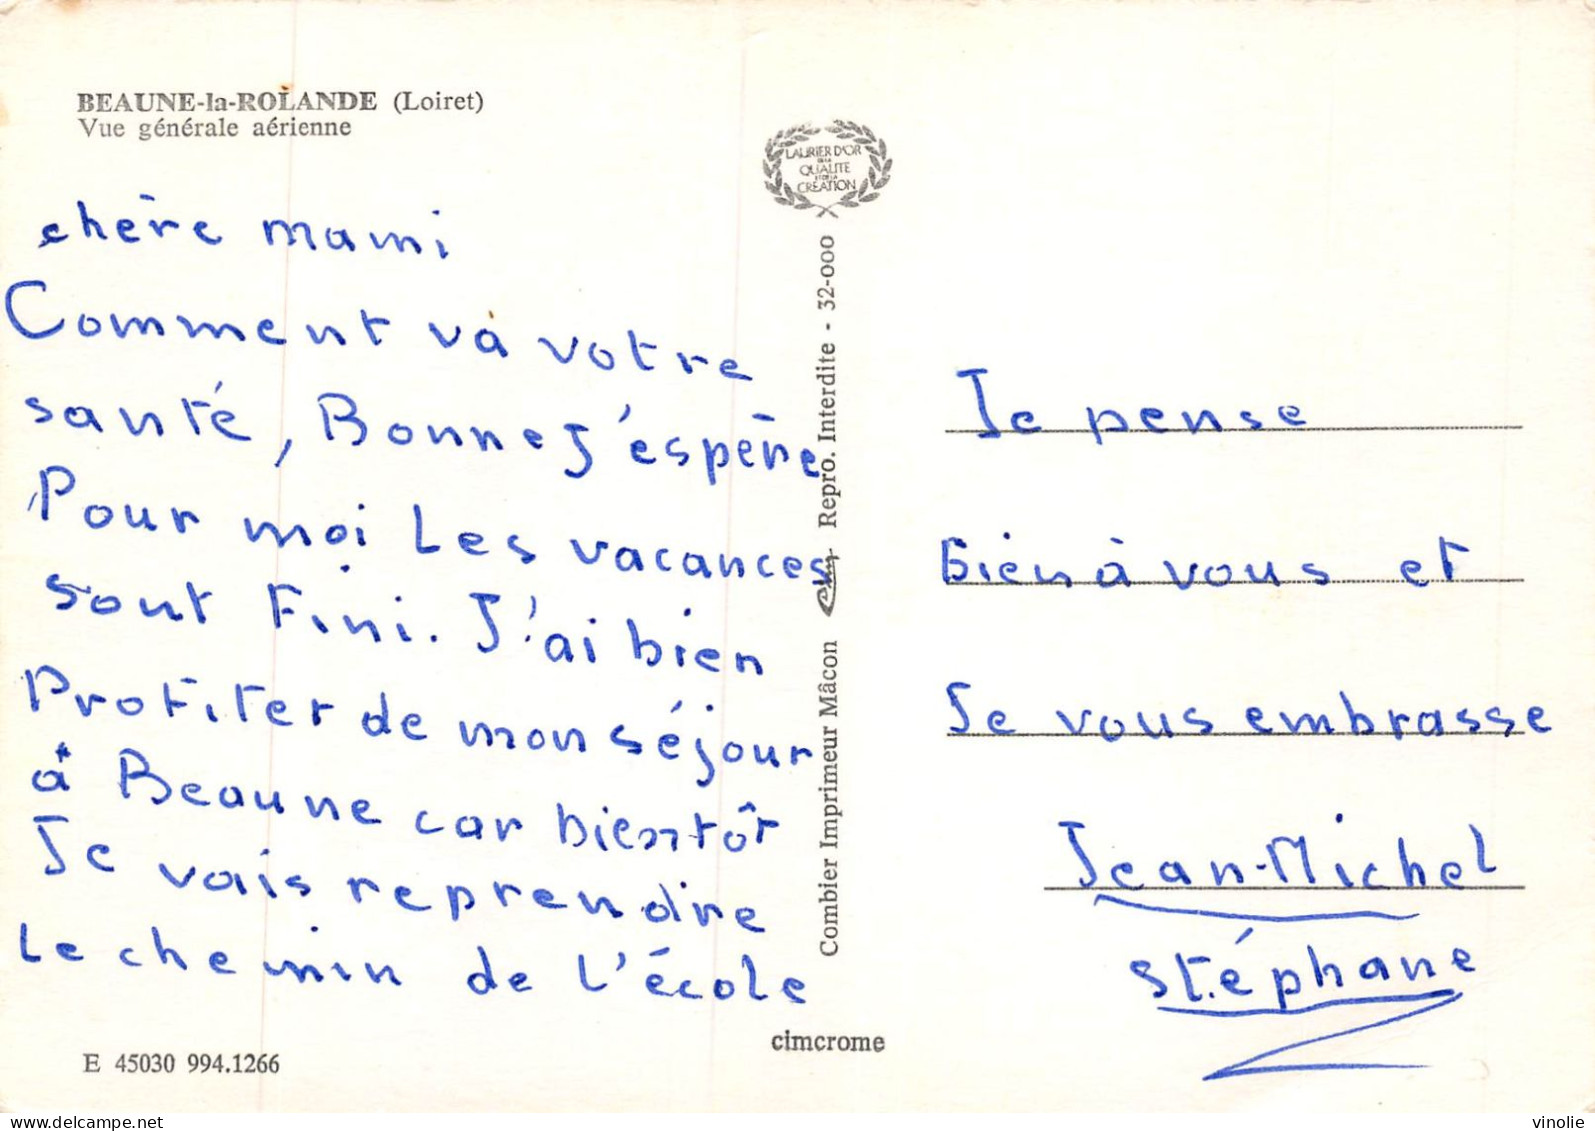 BEAUNE-la-ROLANDE (Loiret)
Vue générale aérienne
LAURIER D'OR
DE LA
QUALITE
ET DE LA
CRÉATION
chère mami
Comment va votre
santé, Bonne J'espère
Pour moi Les vacances
sont Fini. J'ai bien
Profiter de mon séjour
à Beaune car bientôt
Je vais reprendre
Le chemin de L'école
E 45030 994.1266
Combier Imprimeur Mâcon Repro. Interdite - 32-000
cimcrome
Je pense
bien à vous et
Je vous embrasse
Jean-Michel
Stéphane
www.delcampe.net
vinolie